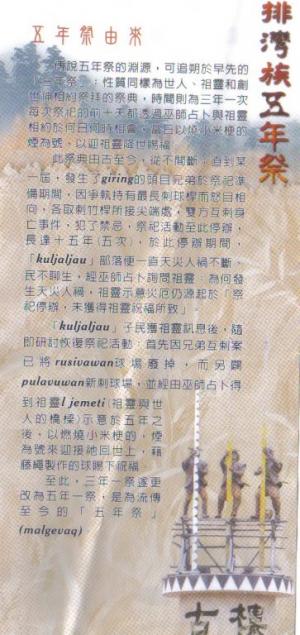 排灣族五年祭
五年祭由來
傳說五年祭的淵源，可追朔於早先的
三年一祭，性質同樣為世人、祖靈和創
世神相約祭拜的祭典，時間則為三年一次
每次祭祀的前十天都透過巫師占卜與祖靈
相約於何日何時相會，當日以燒小米梗的
煙為號，以迎祖靈降世賜福
此祭典由古至今，從不間斷，直到某
一屆，發生了giring的頭目兄弟於祭祀準
備期間，因爭執持有最長刺球桿而怒目相
向，各取刺竹桿所接尖端處，雙方互刺身
亡事件，犯了禁忌，祭祀活動至此停辦，
長達十五年(五次)，於此停辦期間，
「kuljaljau」部落便一直天災人禍不斷，
民不聊生，經巫師占卜詢問祖靈，為何發
生天災人禍，祖靈示意災厄仍源起於「祭
祀停辦，未獲得祖靈祝福所致」
「kuljaljau」子民獲祖靈訊息後，隨
即研討恢復祭祀活動；首先因兄弟互刺案
已將rusivawan球場廢掉，而另闢
pulavuwan新刺球場，並經由巫師占卜得
到祖靈l jemeti(祖靈與世
人的橋樑)示意於五年之
後，以燃燒小米梗的，煙
為號來迎接祂回世上，藉
藤繩製作的球賜下祝福
至此，三年一祭遂更
改為五年一祭，是為流傳
至今的「五年祭」
(malgevaq)
古樓